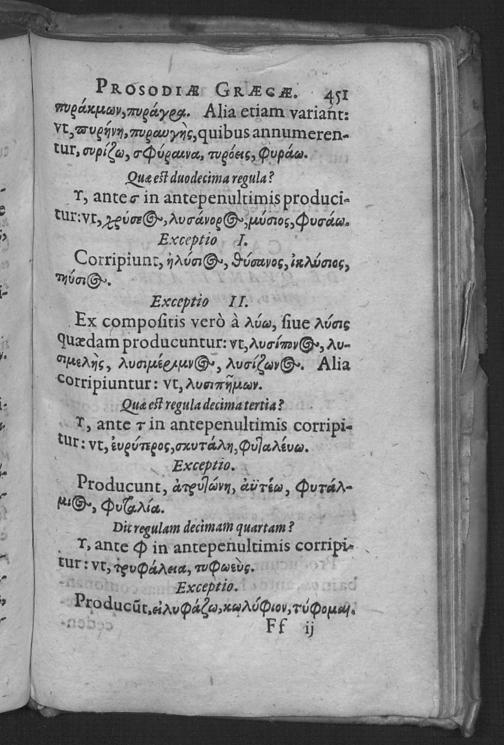 PROSODIÆ GRÆCÆ. 451
πυράκμων, πυράγρα. Alia etiam variant:
vt, πυρήνη, πυραυγὴς, quibus annumeren-
tur, συρίζω, σφύραινα, τυρόεις, φυράω.
Quæ est duodecima regula?
Υ, ante σ in antepenultimis produci-
tur: vt, χρύσεος, λυσάνορος, μύσιος, φυσάω.
Exceptio I.
Corripiunt, ἠλύσιος, θύσανος, ἰκλύσιος,
τηύσιος.
Exceptio II.
Ex compositis verò à λύω, siue λύσις
quædam producuntur: vt, λυσίπονος, λυ-
σιμελὴς, λυσιμέριμνος, λυσίζωνος. Alia
corripiuntur: vt, λυσιπήμων.
Quæ est regula decima tertia?
Υ, ante τ in antepenultimis corripi-
tur: vt, ἐυρύτερος, σκυτάλη, φυταλέυω.
Exceptio.
Producunt, ἀτρυτώνη, ἀϋτέω, φυτάλ-
μιος, φυταλία.
Dic regulam decimam quartam?
Υ, ante φ in antepenultimis corripi-
tur: vt, τρυφάλεια, τυφωεὺς.
Exceptio.
Producũt, εἰλυφάζω, κωλύφιον, τύφομαι.
Ff ij